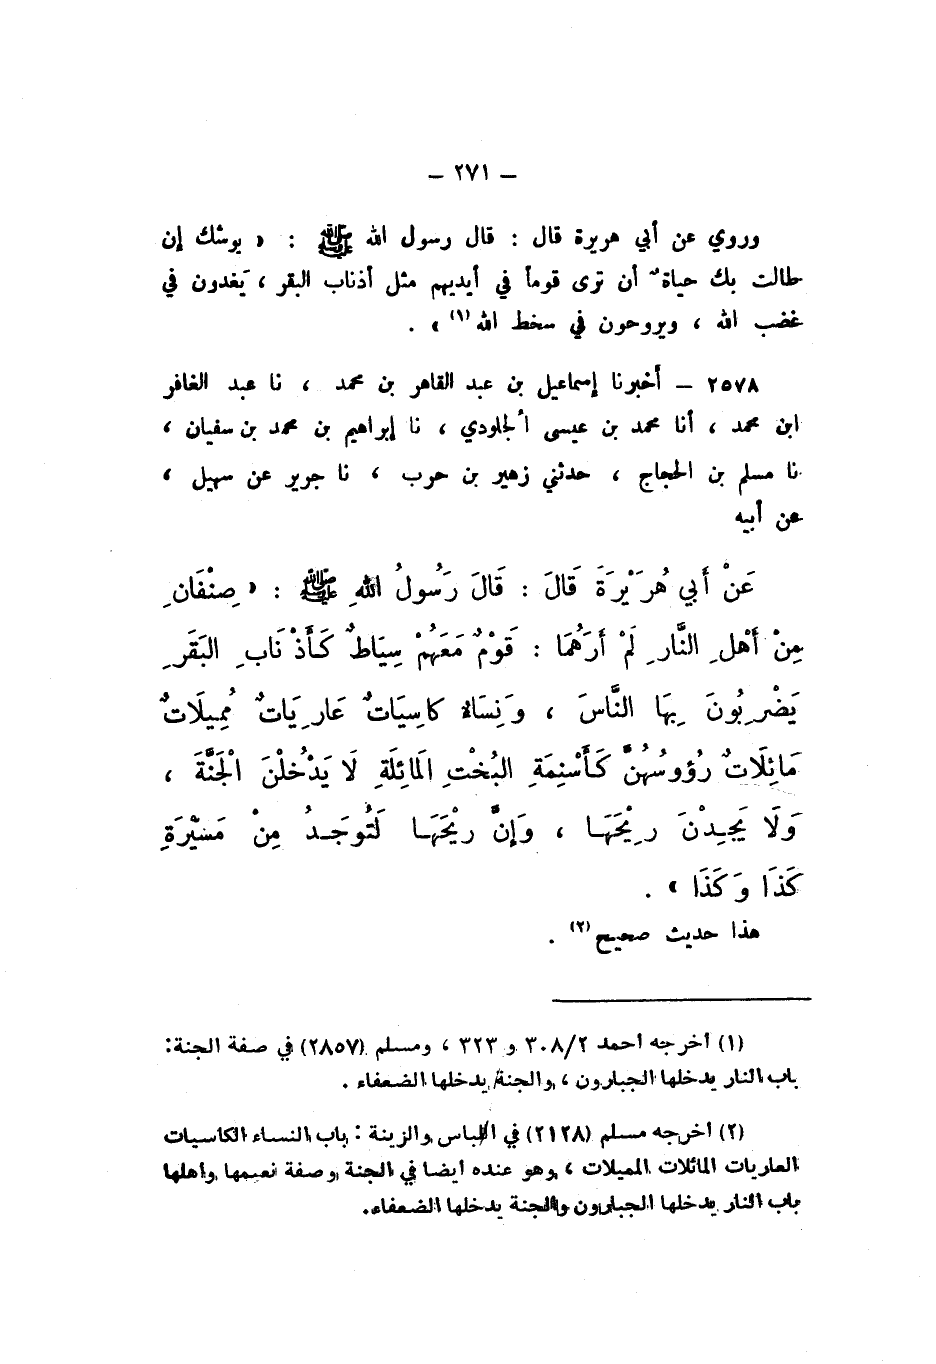 – ٢٧١ –
وروي عن أبي هريرة قال : قال رسول الله ﷺ : « يوشك إن
طالت بك حياةٌ أن ترى قوماً في أيديهم مثل أذناب البقر ، يَغدون في
غضب الله ، ويروحون في سخط الله (١) » .
٢٥٧٨ – أخبرنا إسماعيل بن عبد القاهر بن محمد ، نا عبد الغافر
ابن محمد ، أنا محمد بن عيسى الجُلودي ، نا إبراهيم بن محمد بن سفيان ،
نا مسلم بن الحجاج ، حدثني زهير بن حرب ، نا جرير عن سهيل ،
عن أبيه
عَنْ أَبي هُرَيْرَةَ قَالَ : قَالَ رَسُولُ اللهِ ﷺ : « صِنْفَانِ
مِنْ أَهْلِ النَّارِ لَمْ أَرَهُمَا : قَوْمٌ مَعَهُمْ سِيَاطٌ كَأَذْنَابِ البَقَرِ
يَضْرِبُونَ بِهَا النَّاسَ ، وَنِسَاءٌ كاسِيَاتٌ عَارِيَاتٌ مُمِيلَاتٌ
مَائِلَاتٌ رُؤوسُهُنَّ كَأَسْنِمَةِ البُخْتِ المَائِلَةِ لَا يَدْخُلْنَ الْجَنَّةَ ،
وَلَا يَجِدْنَ رِيْحَهَا ، وَإِنَّ رِيْحَهَا لَتُوجَدُ مِنْ مَسِيْرَةِ
كَذَا وَكَذَا » .
هذا حديث صحيح (٢) .
(١) أخرجه أحمد ٣٠٨/٢ و ٣٢٣ ، ومسلم (٢٨٥٧) في صفة الجنة:
باب النار يدخلها الجبارون ، والجنة يدخلها الضعفاء .
(٢) أخرجه مسلم (٢١٢٨) في اللباس والزينة : باب النساء الكاسيات
العاريات المائلات المميلات ، وهو عنده أيضا في الجنة وصفة نعيمها وأهلها
باب النار يدخلها الجبارون والجنة يدخلها الضعفاء.